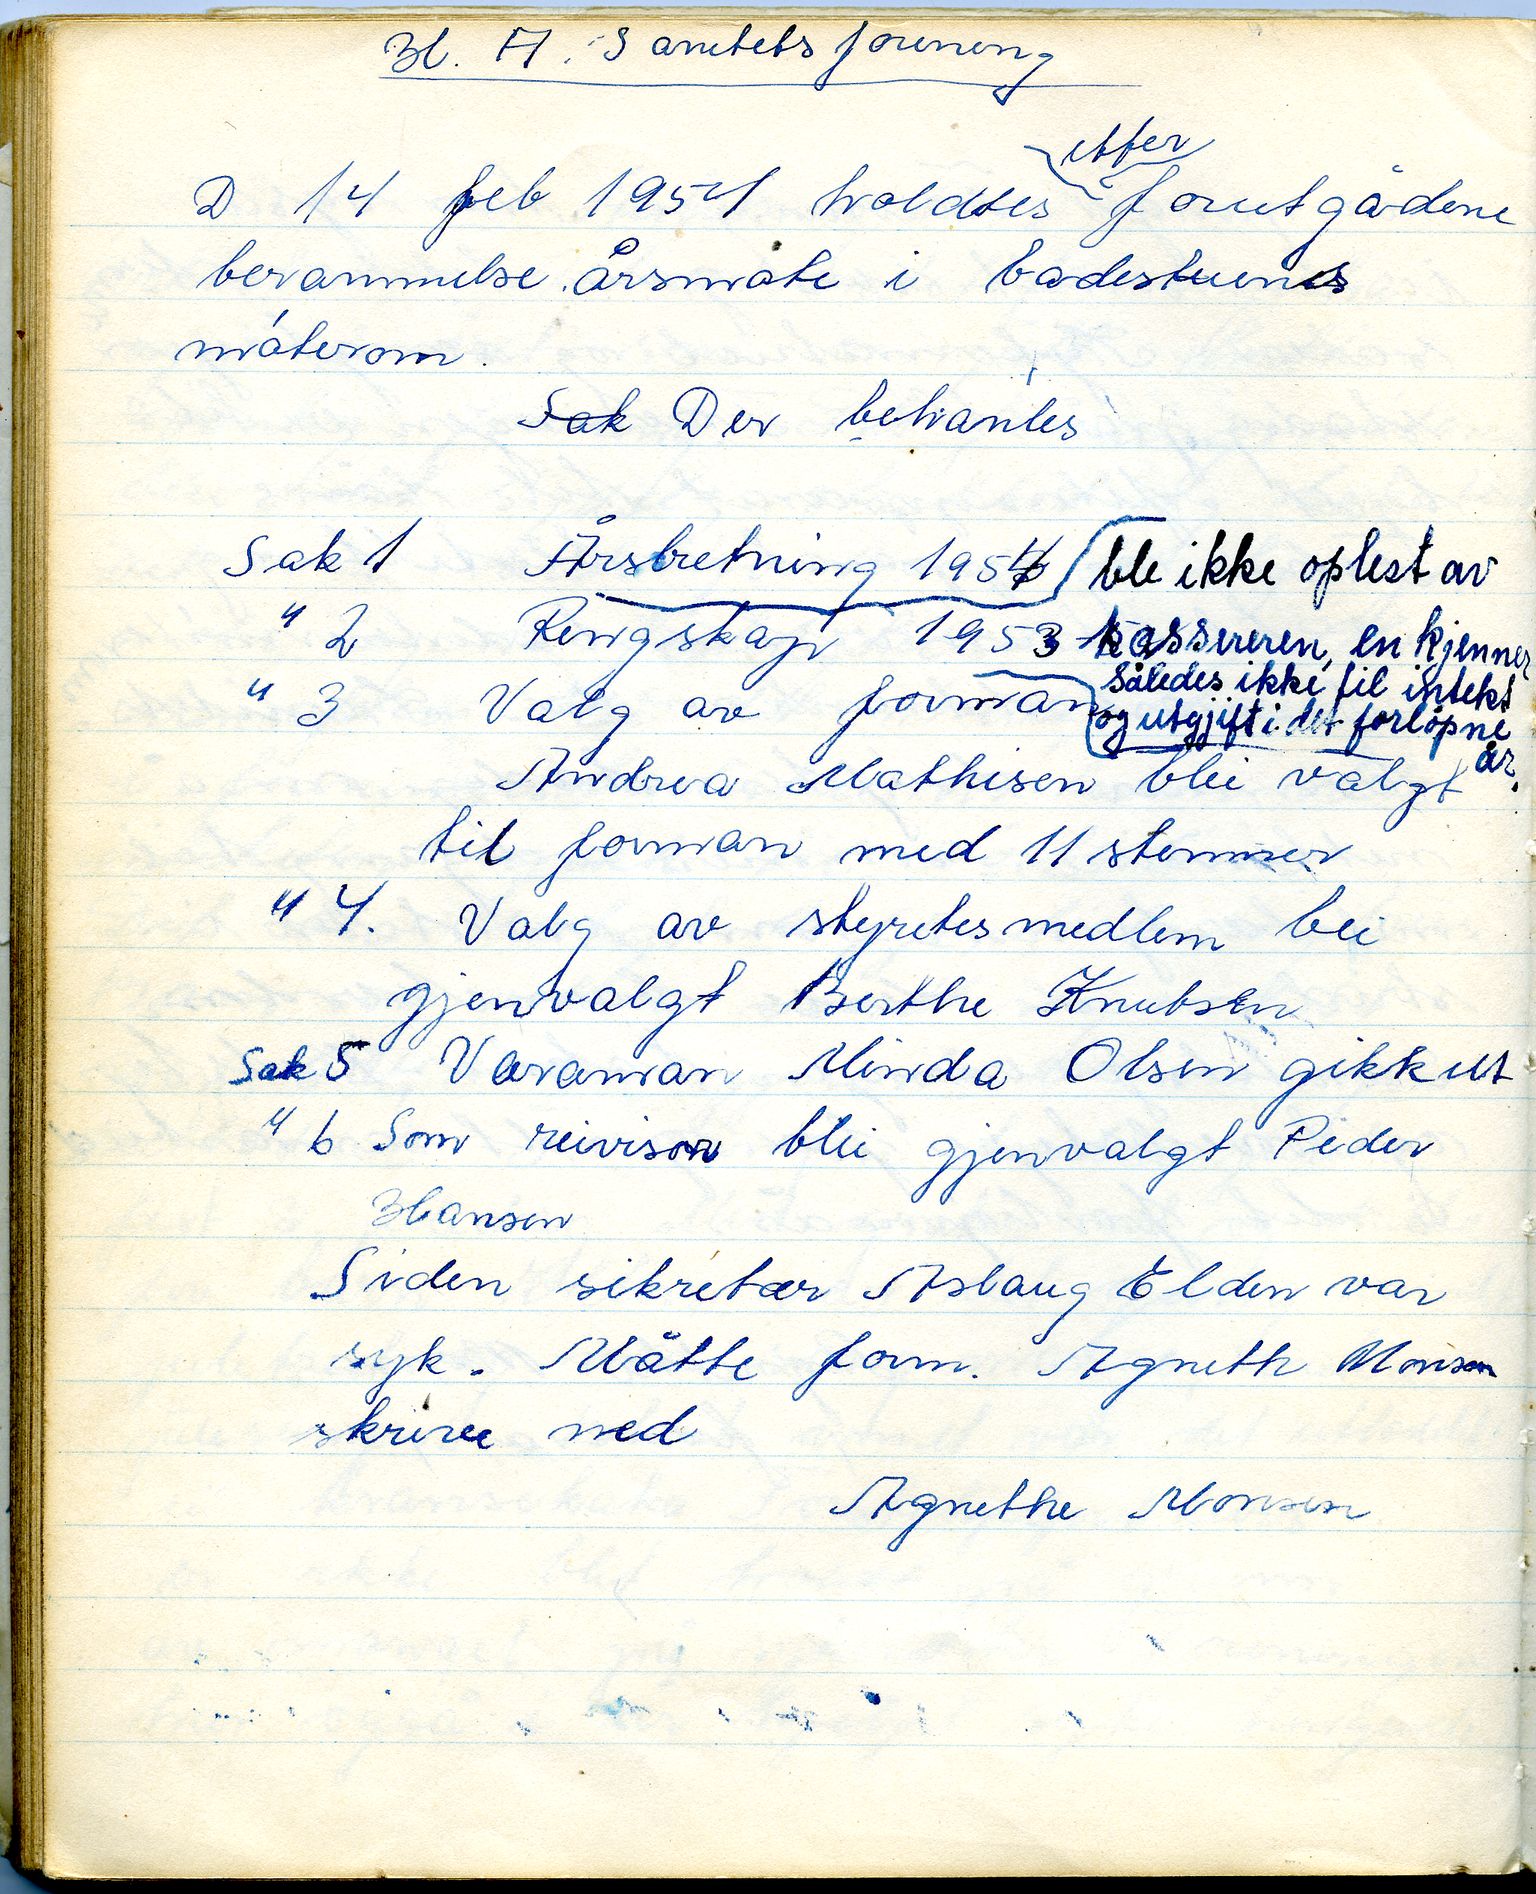 H. A. Sanitetsforening
etter
D 14 feb 1954 holdtes forutgådene
berammelse årsmøte i badestuens
møterom.
Sak Der behantles
Sak 1 Årsbretning 1954 ble ikke oplest av
" 2 Rengskap 1953 kassereren, en kjenner
således ikke til intekt
" 3 Valg av forman og utgjift i det forløpne
år.
Andrea Mathisen blei valgt
til forman med 11 stemmer
" 4. Valg av styretesmedlem blei
gjenvalgt Berthe Knutsen
Sak 5 Varaman Minda Olsen gikk ut
" 6 Som reivisor blei gjenvalgt Peder
Hansen
Siden sikretær Aslaug Elden var
syk. Måtte form. Agneth Monsen
skrive ned
Agnethe Monsen